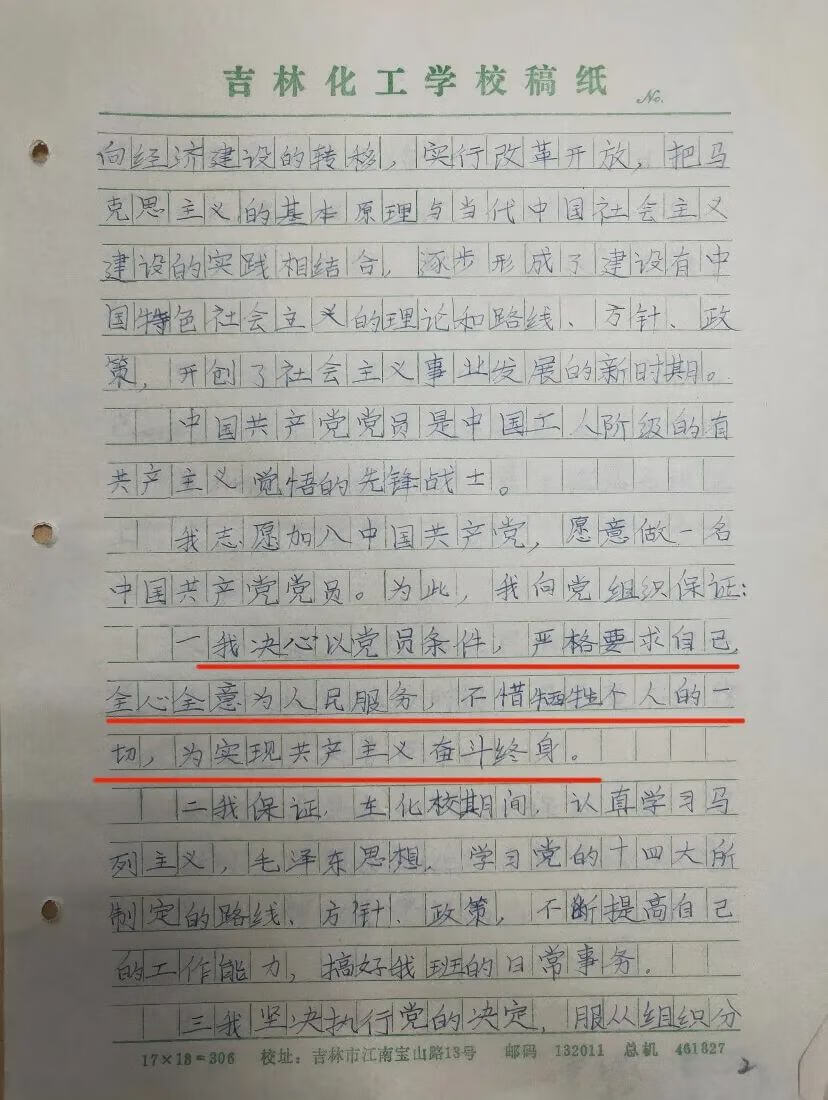 吉林化工学校稿纸
No.
向经济建设的转移，实行改革开放，把马
克思主义的基本原理与当代中国社会主义
建设的实践相结合，逐步形成了建设有中
国特色社会主义的理论和路线、方针、政
策，开创了社会主义事业发展的新时期。
中国共产党党员是中国工人阶级的有
共产主义觉悟的先锋战士。
我志愿加入中国共产党，愿意做一名
中国共产党党员。为此，我向党组织保证：
一我决心以党员条件，严格要求自己，
全心全意为人民服务，不惜牺牲个人的一
切，为实现共产主义奋斗终身。
二我保证，在化校期间，认真学习马
列主义，毛泽东思想，学习党的十四大所
制定的路线、方针、政策，不断提高自己
的工作能力，搞好我班的日常事务。
三我坚决执行党的决定，服从组织分
17×18=306 校址：吉林市江南宝山路13号 邮码 132011 总机 461827
2